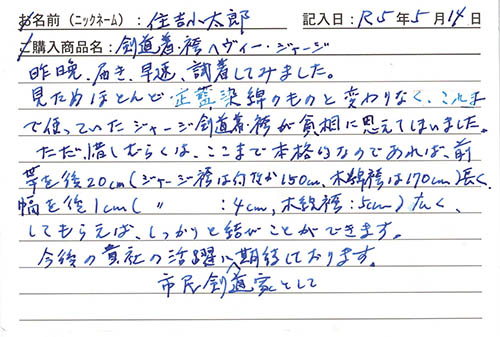 お名前（ニックネーム）：住吉小太郎 記入日：R5年5月14日
ご購入商品名：剣道着・袴ヘヴィー・ジャージ
昨晩、届き、早速、試着してみました。
見ためほとんど正藍染綿のものと変わりなく、これま
で使っていたジャージ剣道着・袴が貧相に思えてしまいました。
ただ、惜しむらくは、ここまで本格的なのであれば、前
帯を後20cm（ジャージ袴は何故か150cm、木綿袴は170cm）長く、
幅を後1cm（ 〃 ：4cm、木綿袴：5cm）広く、
してもらえば、しっかりと結ぶことができます。
今後の貴社の活躍に期待しております。
市民剣道家として